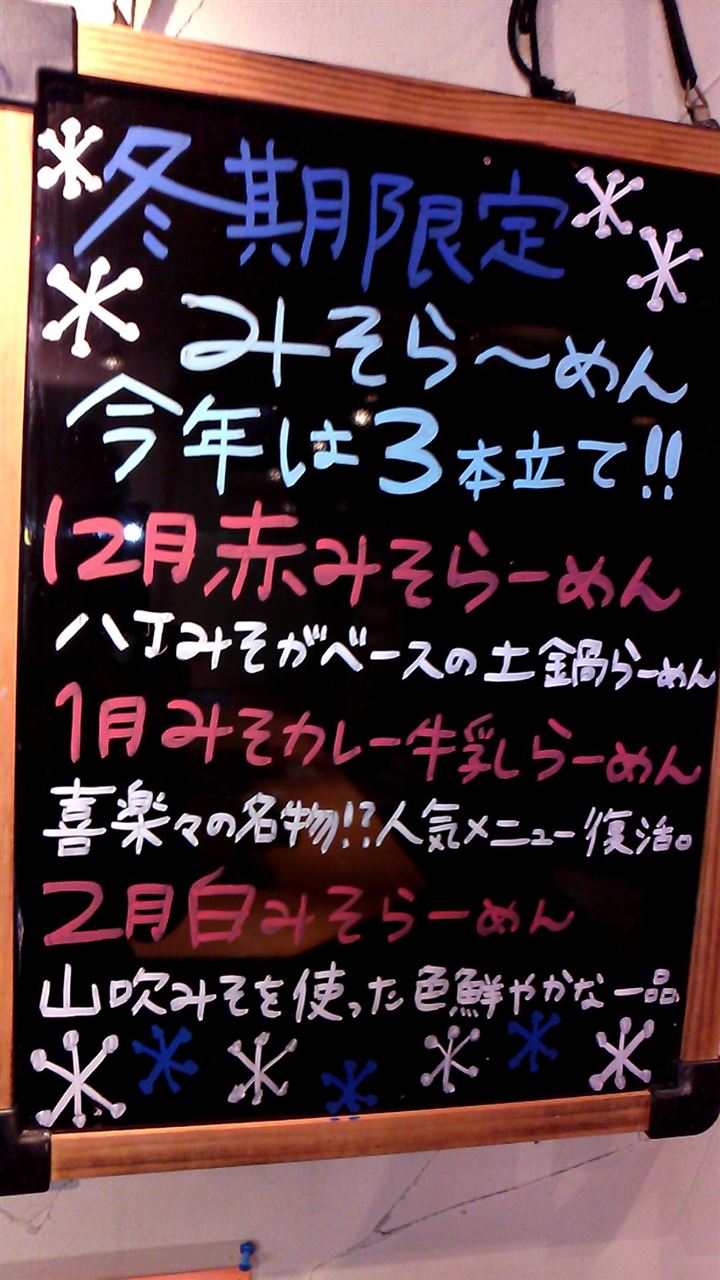 冬期限定
みそら〜めん
今年は3本立て!!
12月赤みそらーめん
八丁みそがベースの土鍋らーめん
1月みそカレー牛乳らーめん
喜楽々の名物!?人気メニュー復活。
2月白みそらーめん
山吹みそを使った色鮮やかな一品